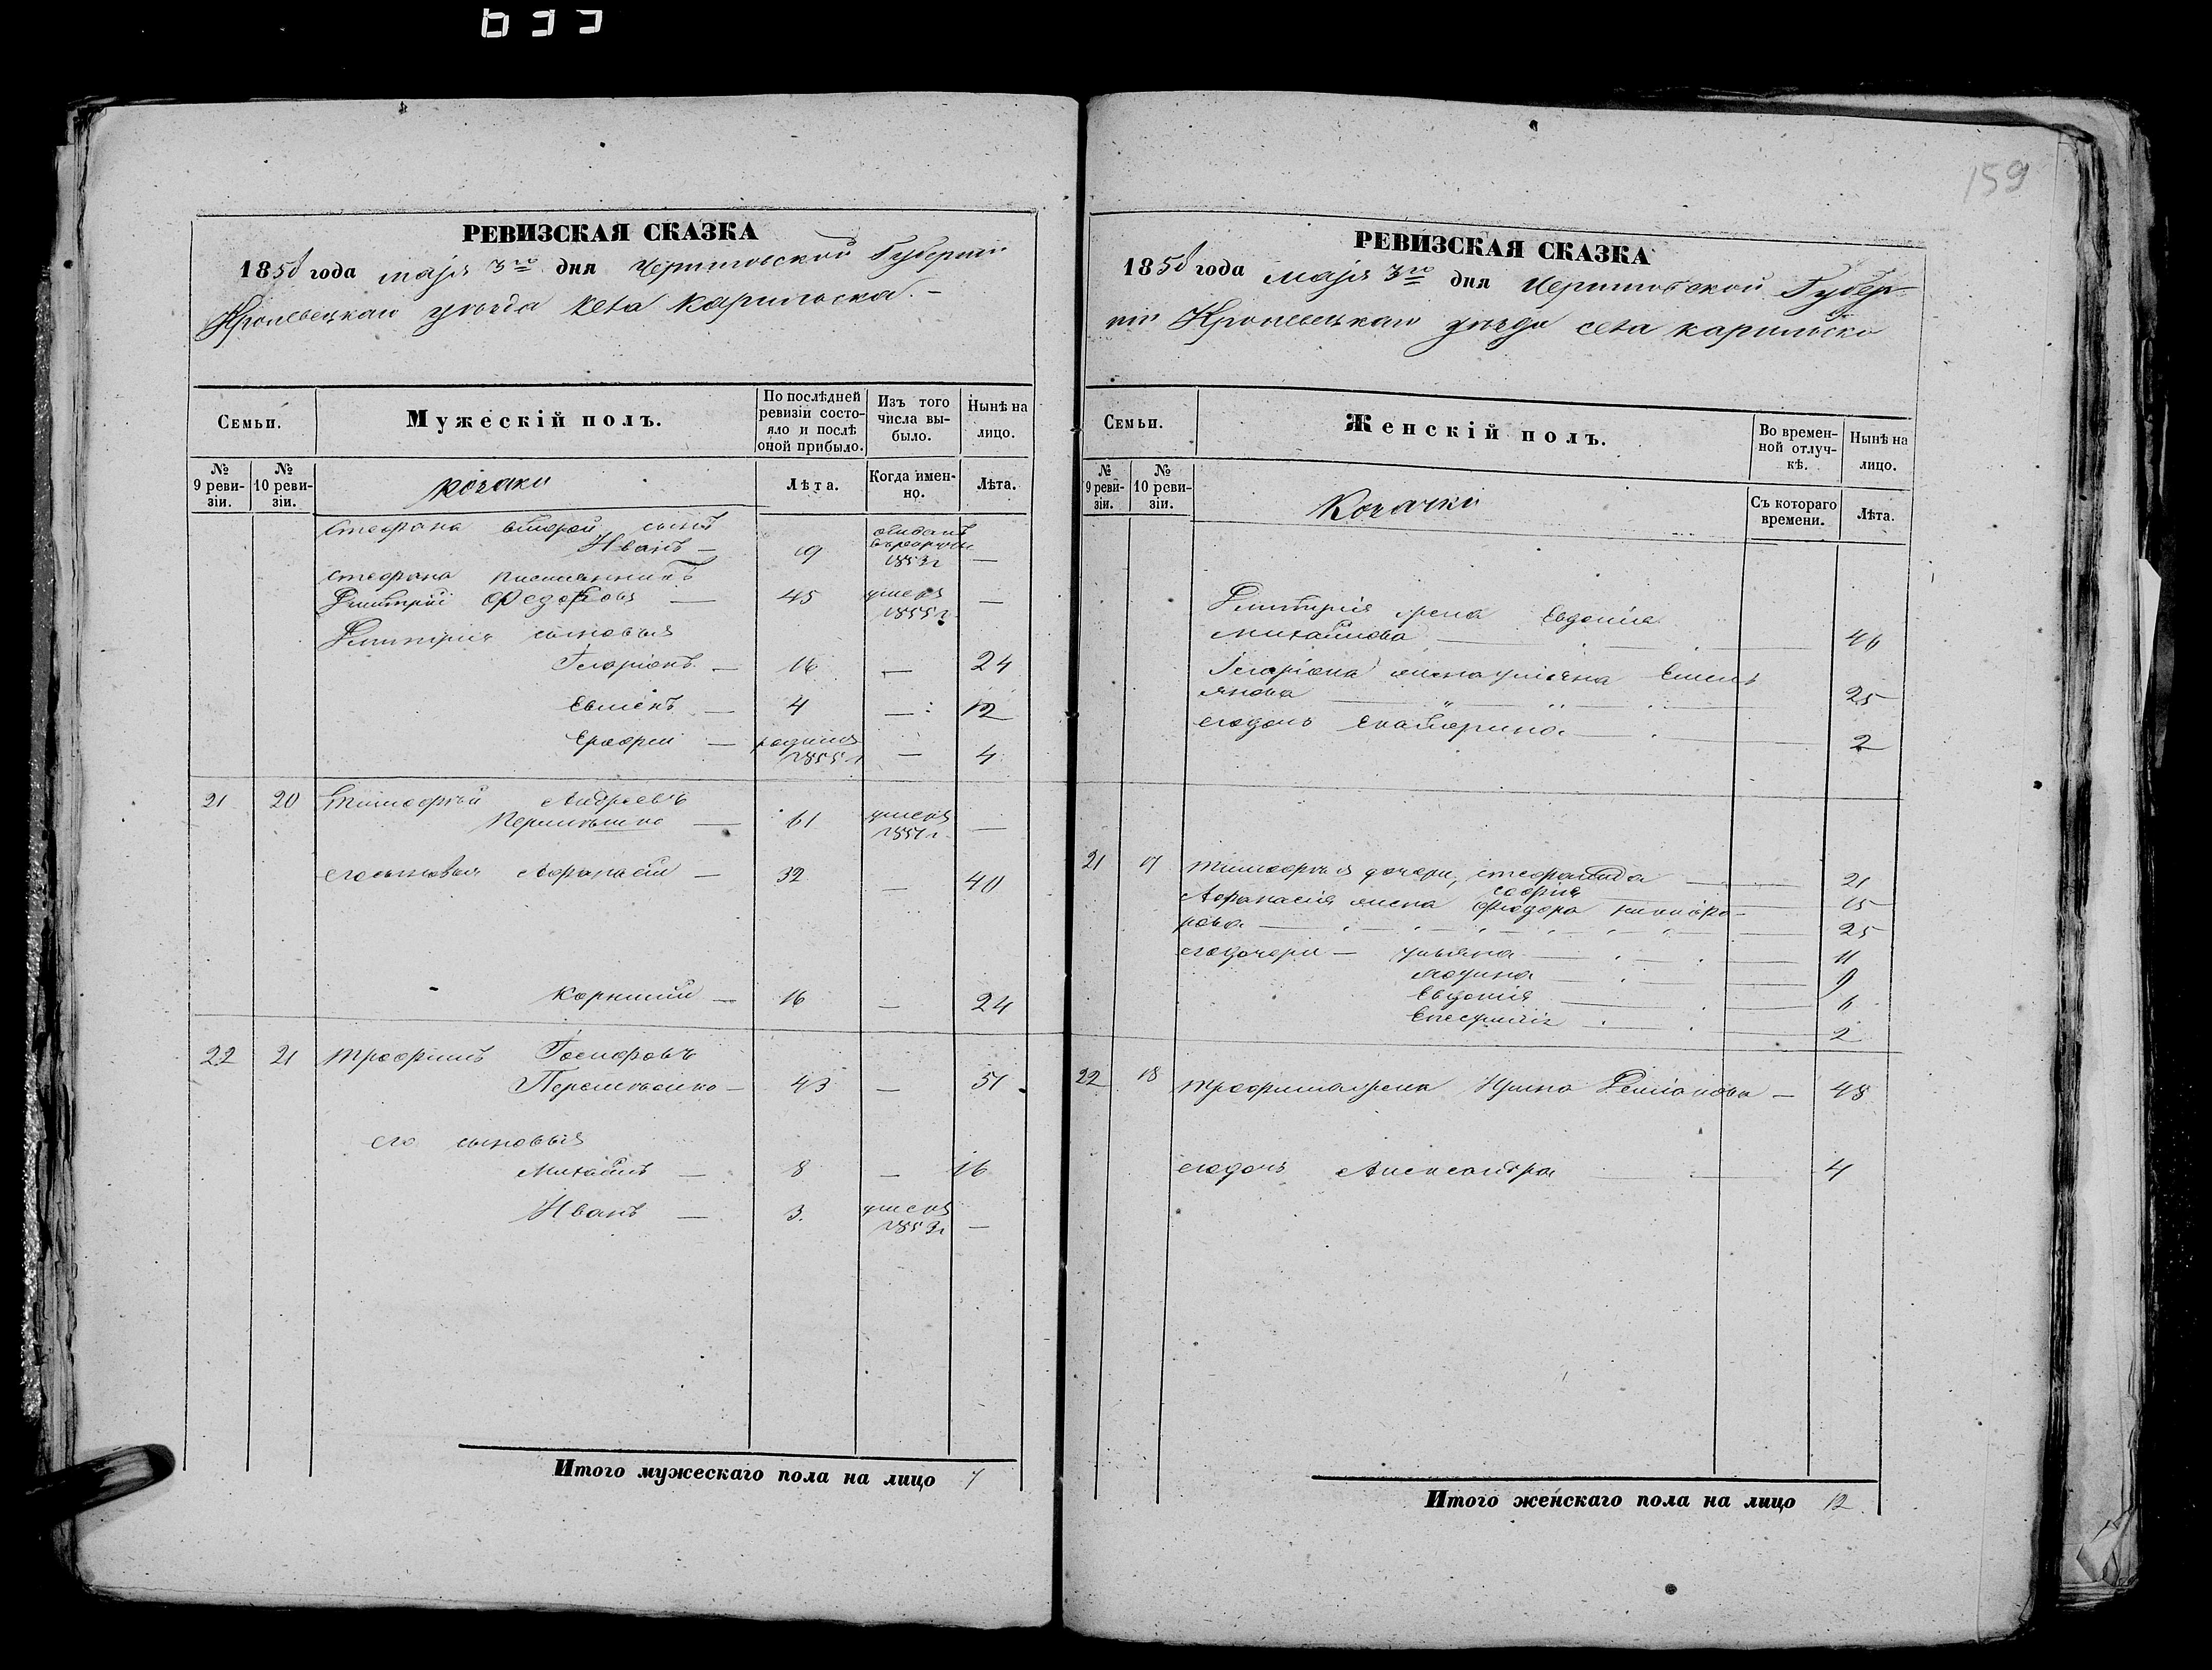 159
РЕВИЗСКАЯ СКАЗКА
1858 года маjя 3го дня Черниговской Губерніи
Кролевецкаго уѣзда села Карильска. –
Семьи.
Мужескій полъ.
По послѣдней ревизіи состояло и послѣ оной прибыло.
Изъ того числа выбыло.
Нынѣ на лицо.
№ 9 ревизіи.
№ 10 ревизіи.
козаки
Лѣта.
Когда именно.
Лѣта.
Стефана второй сынъ
Иванъ — 19 отданъ в рекруты 1853 г —
Стефана
Дмитрій Федоровъ — 45 умеръ 1855 г. —
Дмитрія сыновья
Іларіонъ — 16 — 24
Евменъ — 4 — 12
Ерофей — родился 1855 г — 4
21 20 Тимофѣй Андреевъ
61 умеръ 1851 г —
его сыновья Афанасій — 32 — 40
Корнилій — 16 — 24
22 21 Трофимъ
43 — 51
его сыновья
Михаилъ — 8 — 16
Иванъ — 3. умеръ 1853 г —
Итого мужескаго пола на лицо 7
РЕВИЗСКАЯ СКАЗКА
1858 года маjя 3го дня Черниговской Губер-
ніи Кролевецкаго уѣзда села Карильска
Семьи.
Женскій полъ.
Во временной отлучкѣ.
Нынѣ на лицо.
№ 9 ревизіи.
№ 10 ревизіи.
Козачки
Съ котораго времени.
Лѣта.
Дмитрія жена Евдокія
Михайлова — 46
Іларіона жена Уліяна Емель
янова 25
его дочь Екатерина — 2
21 17 Тимофѣя дочери, Стефанида — 21
Софія 15
Афанасія жена Федора Никифо-
рова — 25
его дочери — Ульяна — 11
Марина — 9
Евдокія 6
2
22 18 Трофима жена Ирина Деміанова — 48
его дочь Александра 4
Итого женскаго пола на лицо 12